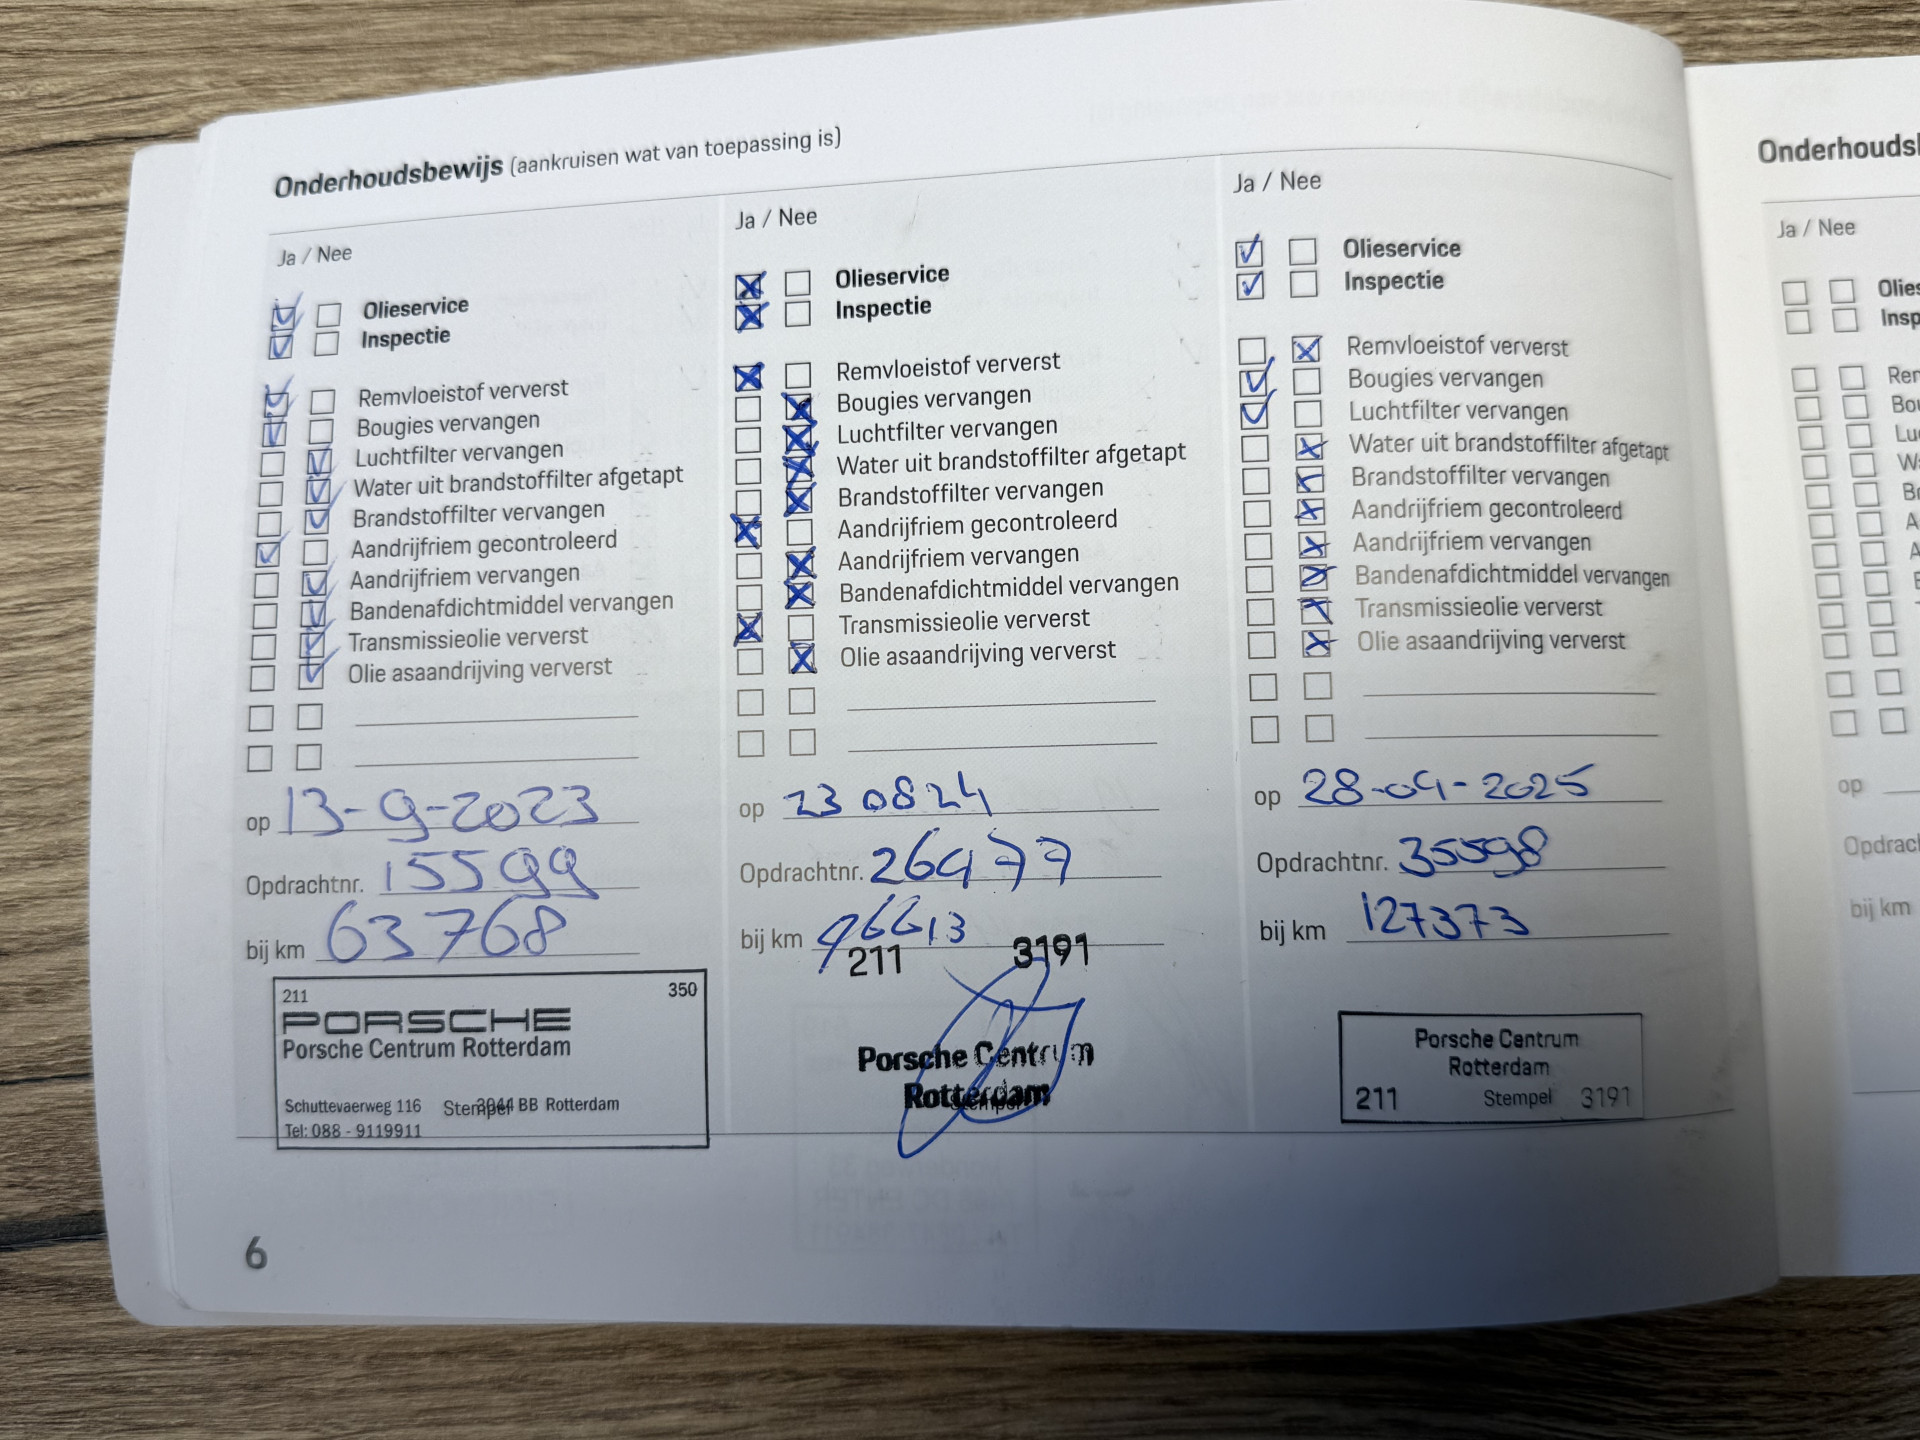 Onderhoudsbewijs (aankruisen wat van toepassing is)
Ja / Nee
Olieservice
Inspectie
Remvloeistof ververst
Bougies vervangen
Luchtfilter vervangen
Water uit brandstoffilter afgetapt
Brandstoffilter vervangen
Aandrijfriem gecontroleerd
Aandrijfriem vervangen
Bandenafdichtmiddel vervangen
Transmissieolie ververst
Olie asaandrijving ververst
op 13-9-2023
Opdrachtnr. 15599
bij km 63768
211 350
PORSCHE
Porsche Centrum Rotterdam
Schuttevaerweg 116 Stempel 3044 BB Rotterdam
Tel: 088 - 9119911
Ja / Nee
Olieservice
Inspectie
Remvloeistof ververst
Bougies vervangen
Luchtfilter vervangen
Water uit brandstoffilter afgetapt
Brandstoffilter vervangen
Aandrijfriem gecontroleerd
Aandrijfriem vervangen
Bandenafdichtmiddel vervangen
Transmissieolie ververst
Olie asaandrijving ververst
op 23 08 24
Opdrachtnr. 26977
bij km 96613
211 3191
Porsche Centrum
Rotterdam
Stempel
Ja / Nee
Olieservice
Inspectie
Remvloeistof ververst
Bougies vervangen
Luchtfilter vervangen
Water uit brandstoffilter afgetapt
Brandstoffilter vervangen
Aandrijfriem gecontroleerd
Aandrijfriem vervangen
Bandenafdichtmiddel vervangen
Transmissieolie ververst
Olie asaandrijving ververst
op 28-09-2025
Opdrachtnr. 35598
bij km 127373
Porsche Centrum
Rotterdam
211 Stempel 3191
6
Onderhoudsb
Ja / Nee
Olies
Insp
Rem
Bou
Lu
Wa
Br
A
A
op
Opdrach
bij km